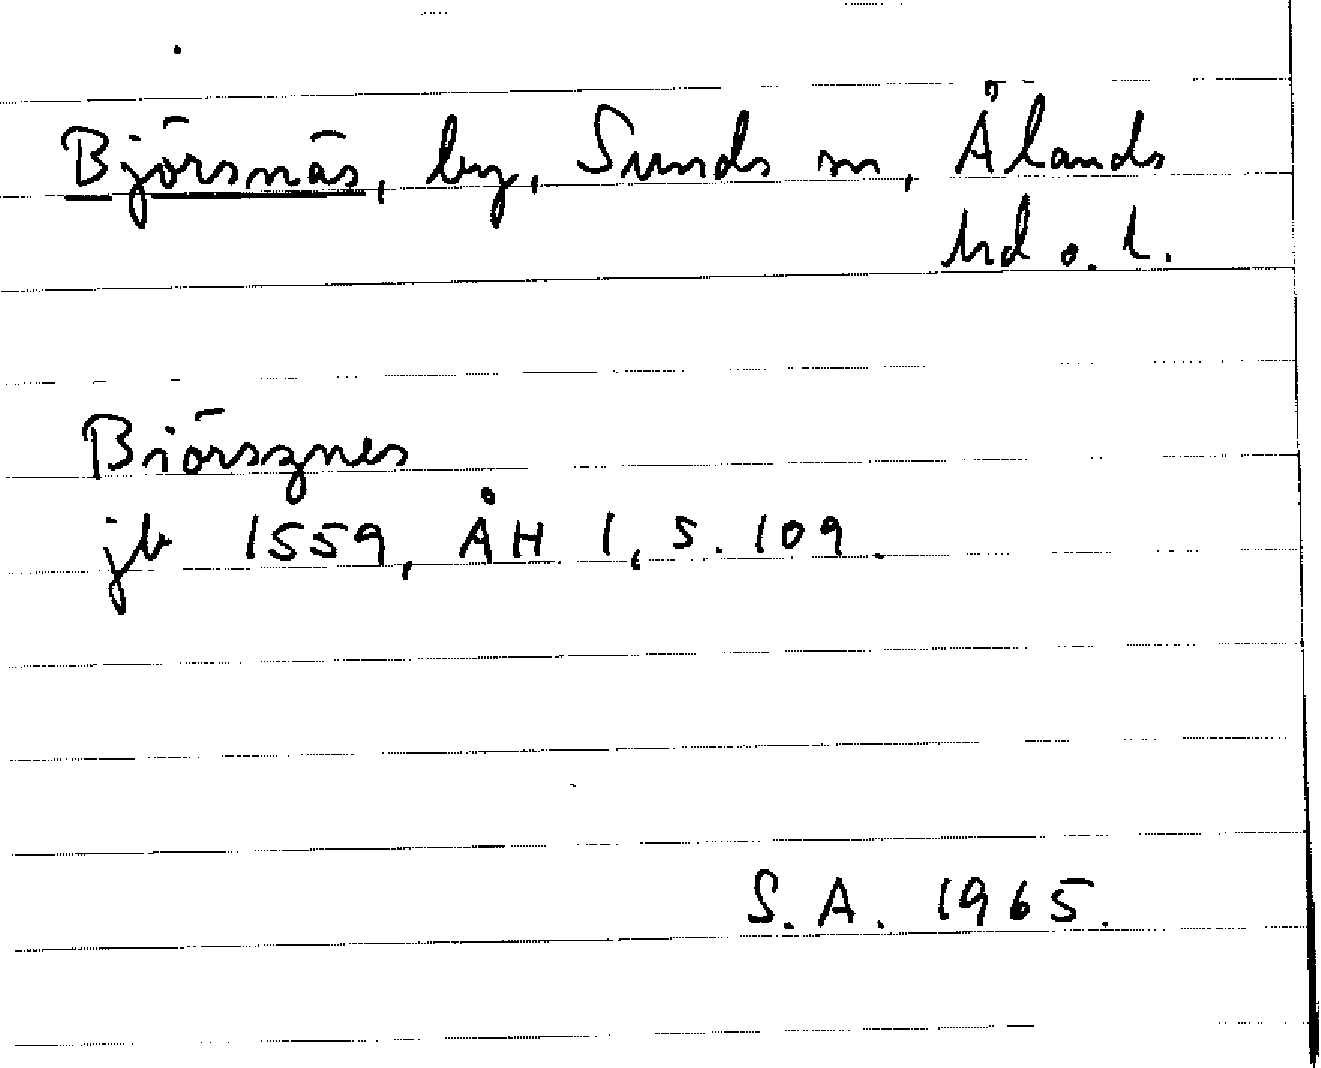 Björsnäs, by, Sunds sn, Ålands
hd o. l.
Biörsznes
jb 1559, ÅH 1, s. 109.
S. A. 1965.